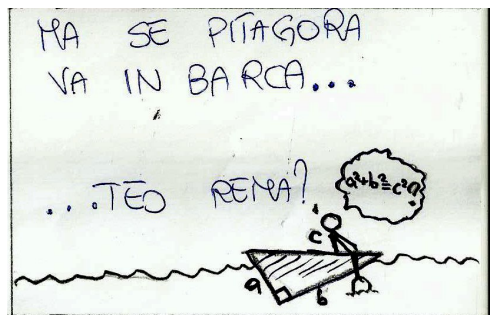 MA SE PITAGORA
VA IN BARCA...
...TEO REMA?
a²+b²=c²?
c
a
b